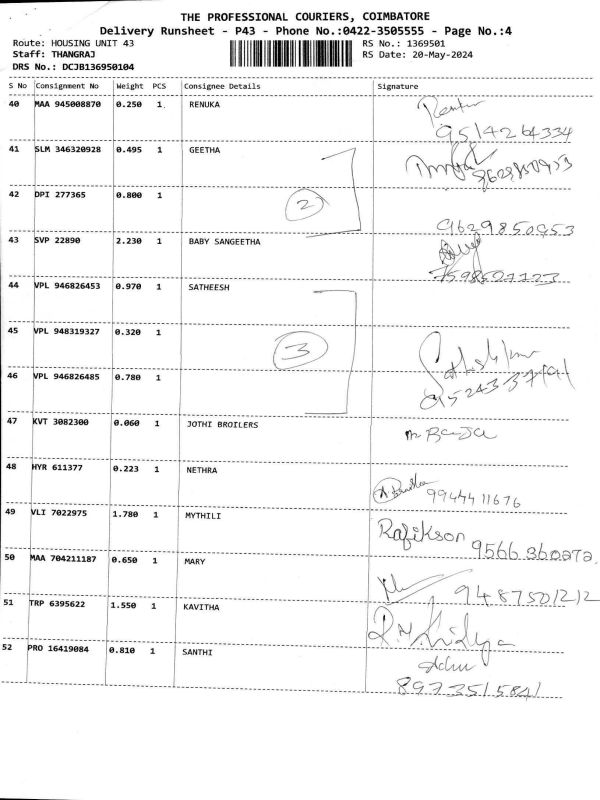 THE PROFESSIONAL COURIERS, COIMBATORE
Delivery Runsheet - P43 - Phone No.:0422-3505555 - Page No.:4
Route: HOUSING UNIT 43
RS No.: 1369501
Staff: THANGRAJ
RS Date: 20-May-2024
DRS No.: DCJB136950104
S No Consignment No Weight PCS Consignee Details Signature
40 MAA 945008870 0.250 1 RENUKA
9514264334
41 SLM 346320928 0.495 1 GEETHA
9629850953
42 DPI 277365 0.800 1
2
9629850953
43 SVP 22890 2.230 1 BABY SANGEETHA
7598527723
44 VPL 946826453 0.970 1 SATHEESH
45 VPL 948319327 0.320 1
3
46 VPL 946826485 0.780 1
47 KVT 3082300 0.060 1 JOTHI BROILERS
48 HYR 611377 0.223 1 NETHRA
9944411676
49 VLI 7022975 1.780 1 MYTHILI
Rafikson
50 MAA 704211187 0.650 1 MARY
9487501212
51 TRP 6395622 1.550 1 KAVITHA
52 PRO 16419084 0.810 1 SANTHI
8973515841